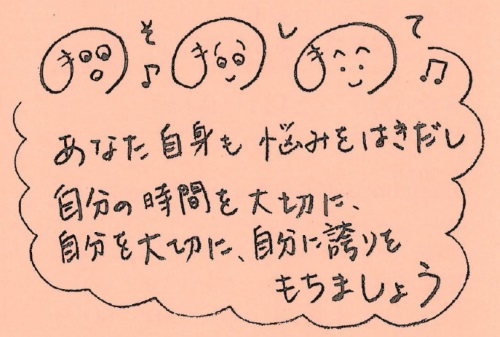 き そ き し き て
あなた自身も 悩みをはきだし
自分の時間を大切に、
自分を大切に、自分に誇りを
もちましょう